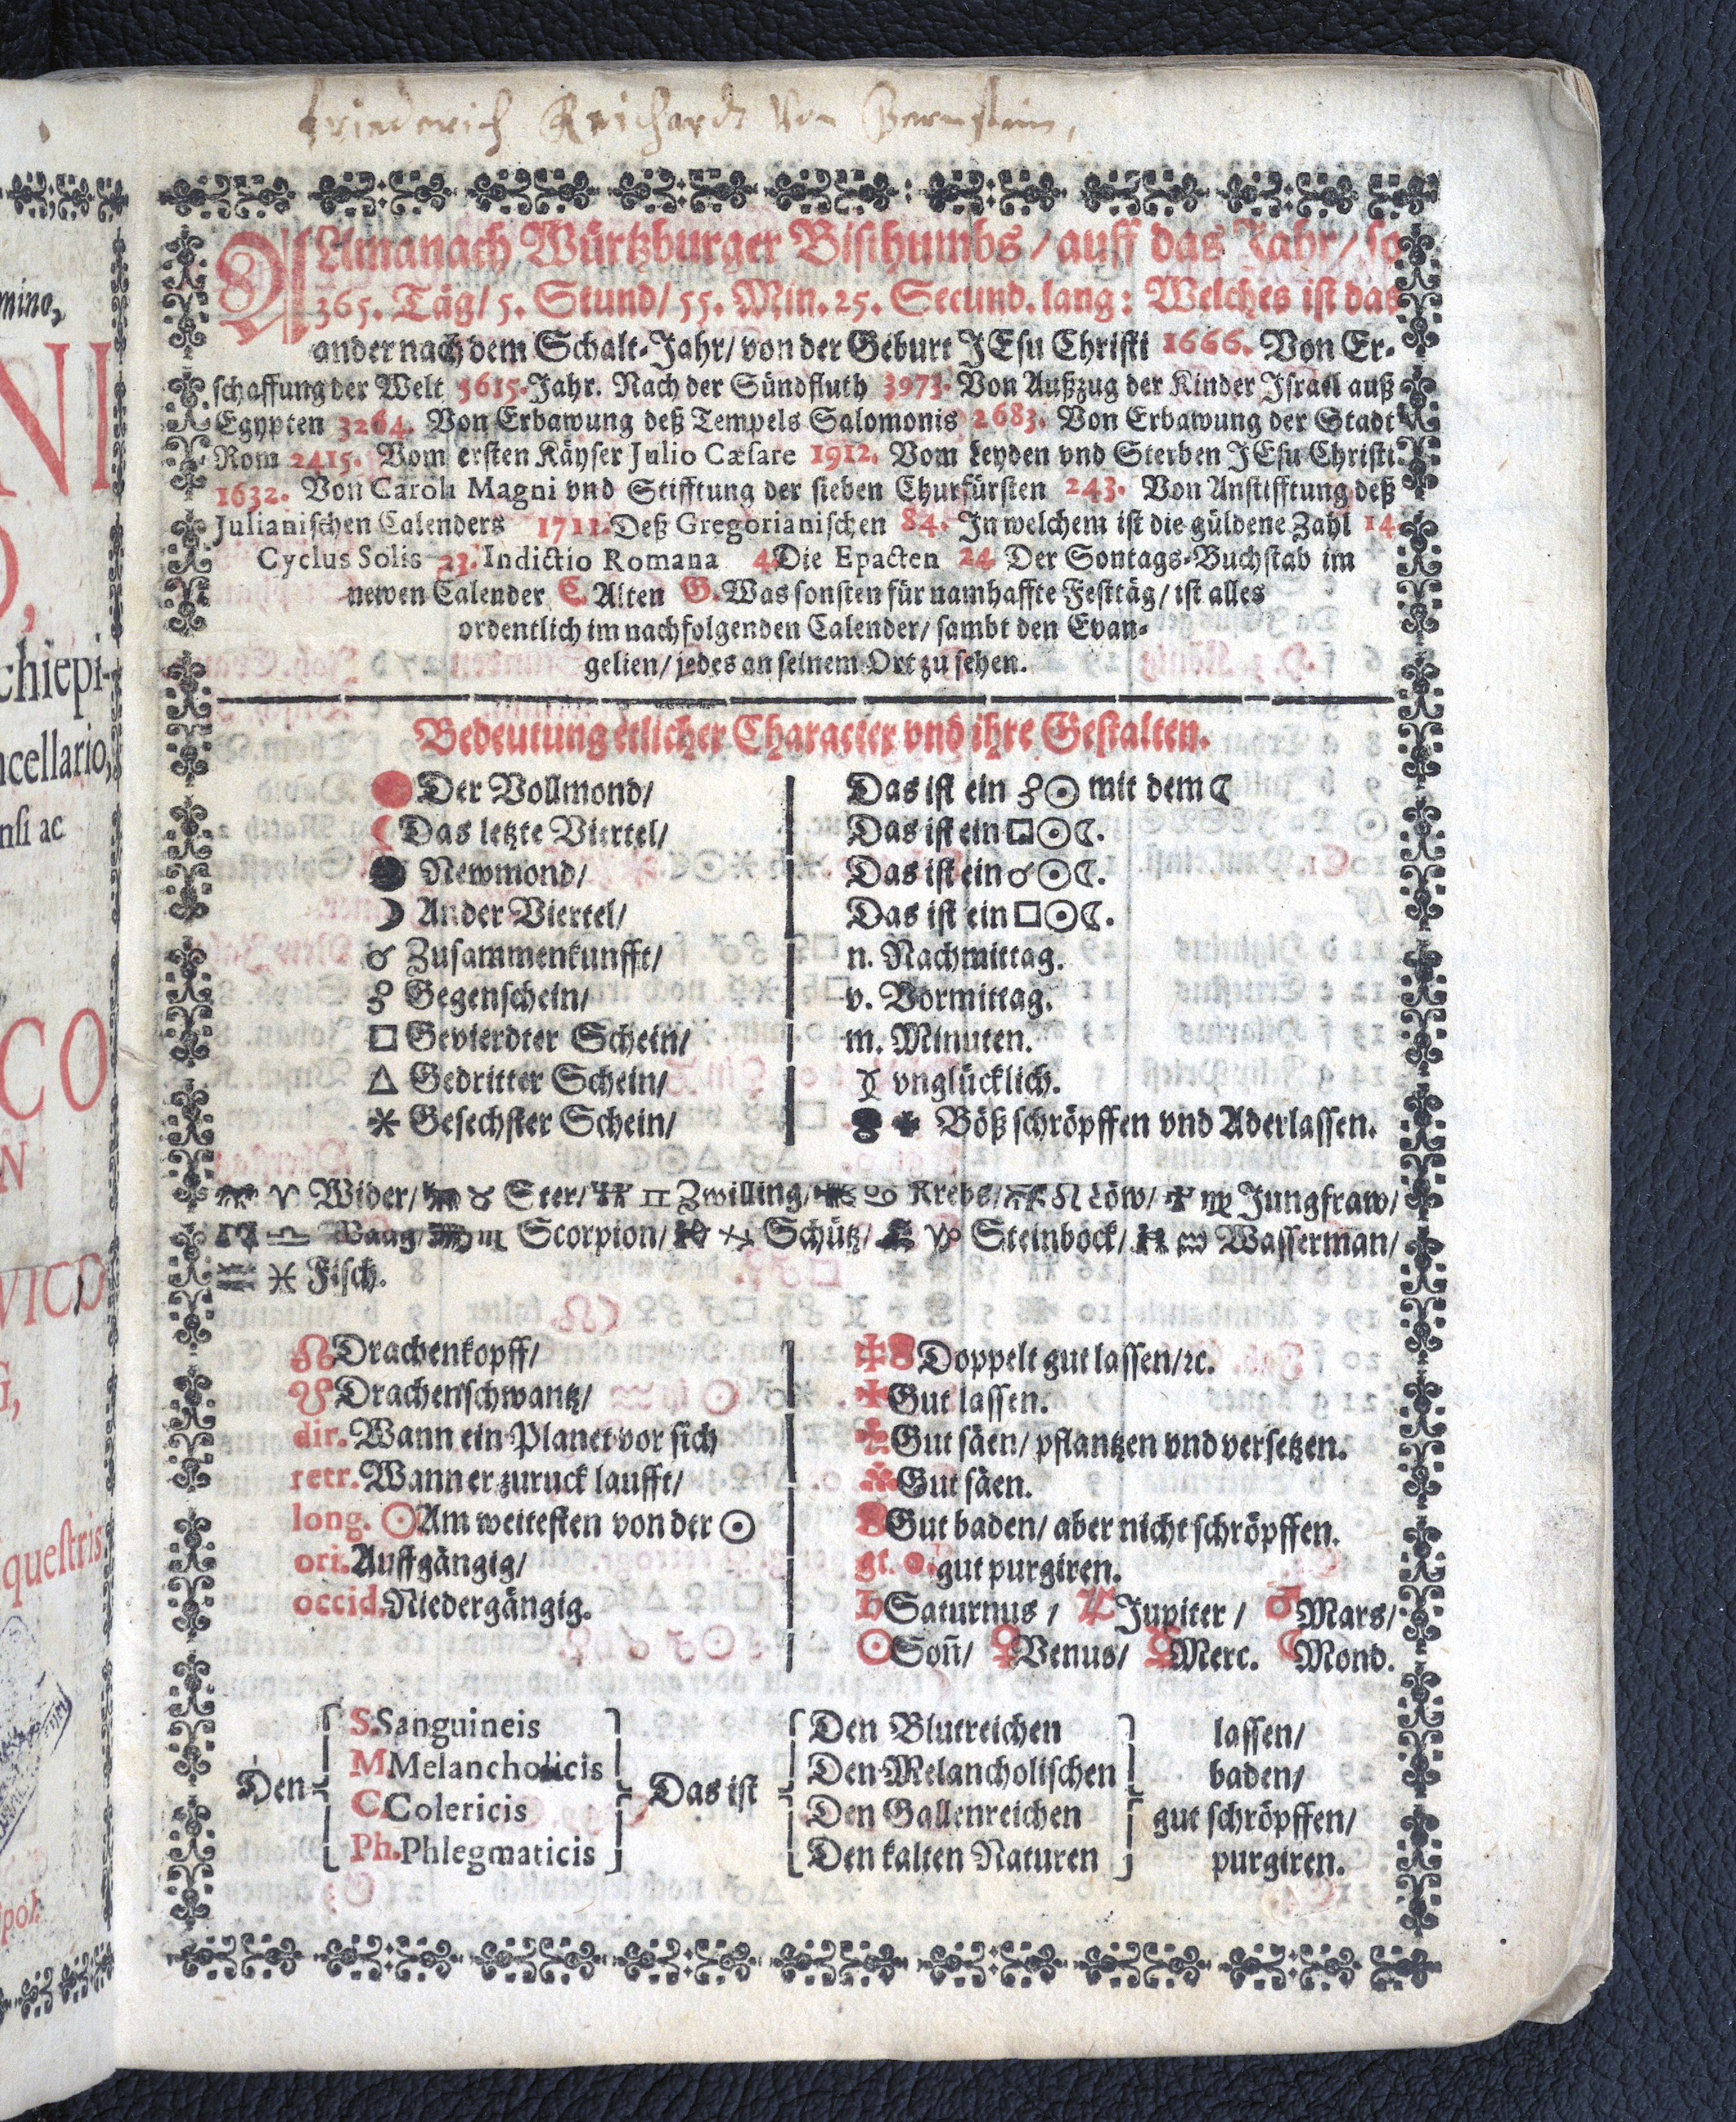 Friederich Reichardt von Bernstein,
ALmanach Würtzburger Bisthumbs / auff das Jahr / so
365. Täg / 5. Stund / 55. Min. 25. Secund. lang: Welches ist das
ander nach dem Schalt-Jahr / von der Geburt JEsu Christi 1666. Von Er-
schaffung der Welt 5615. Jahr. Nach der Sündfluth 3973. Von Außzug der Kinder Israel auß
Egypten 3264. Von Erbawung deß Tempels Salomonis 2683. Von Erbawung der Stadt
Rom 2415. Vom ersten Käyser Julio Cæsare 1912. Vom Leyden vnd Sterben JEsu Christi
1632. Von Caroli Magni vnd Stifftung der sieben Churfürsten 243. Von Anstifftung deß
Julianischen Calenders 1711. Deß Gregorianischen 84. In welchem ist die güldene Zahl 14.
Cyclus Solis 23. Indictio Romana 4. Die Epacten 24. Der Sontags-Buchstab im
newen Calender C. Alten G. Was sonsten für namhaffte Festtäg / ist alles
ordentlich im nachfolgenden Calender / sambt den Evan-
gelien / jedes an seinem Ort zu sehen.
Bedeutung etlicher Character vnd ihre Gestalten.
Der Vollmond / Das ist ein ☍☉ mit dem ☾
☾ Das letzte Viertel / Das ist ein □☉☾.
Newmond / Das ist ein ☌☉☾.
☽ Ander Viertel / Das ist ein □☉☾.
☌ Zusammenkunfft / n. Nachmittag.
☍ Gegenschein / v. Vormittag.
□ Gevierdter Schein / m. Minuten.
△ Gedritter Schein / vnglücklich.
⚹ Gesechster Schein / Böß schröpffen vnd Aderlassen.
♈ Wider / ♉ Ster / ♊ Zwilling / ♋ Krebs / ♌ Löw / ♍ Jungfraw /
♎ Waag / ♏ Scorpion / ♐ Schütz / ♑ Steinbock / ♒ Wasserman /
♓ Fisch.
☊ Drachenkopff / Doppelt gut lassen / ꝛc.
☋ Drachenschwantz / Gut lassen.
dir. Wann ein Planet vor sich Gut säen / pflantzen vnd versetzen.
retr. Wann er zuruck laufft / Gut säen.
long. ☉ Am weitesten von der ☉ Gut baden / aber nicht schröpffen.
ori. Auffgängig / gut purgiren.
occid. Niedergängig. ♄ Saturnus / ♃ Jupiter / ♂ Mars /
☉ Son̄ / ♀ Venus / ☿ Merc. ☾ Mond.
S. Sanguineis Den Blutreichen lassen /
M Melancholicis Den Melancholischen baden /
Den Das ist
C. Colericis Den Gallenreichen gut schröpffen /
Ph. Phlegmaticis Den kalten Naturen purgiren.
mino,
NI
chiepi-
ncellario,
nsi ac
CO
N
VICO
G,
questris